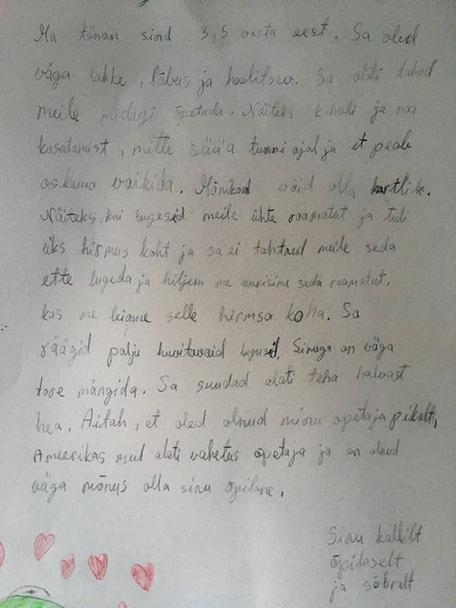 Ma tänan sind 3,5 aasta eest. Sa oled
väga lahke, lõbus ja hoolitsev. Sa alati tahad
meile midagi õpetada. Näiteks kahvli ja noa
kasutamist, mitte süüa tunni ajal ja et peab
oskama vaikida. Mõnikord võid olla kartlik.
Näiteks, kui lugesid meile ühte raamatut ja tuli
üks hirmus koht ja sa ei tahtnud meile seda
ette lugeda ja hiljem me uurisime seda raamatut,
kas me leiame selle hirmsa koha. Sa
räägid palju huvitavaid lugusid. Sinuga on väga
tore mängida. Sa suudad alati teha halvast
hea. Aitäh, et oled olnud minu õpetaja pikalt,
Ameerikas mul alati vahetus õpetaja ja on olnud
väga mõnus olla sinu õpilane.
Sinu kallilt
õpilaselt
ja sõbralt